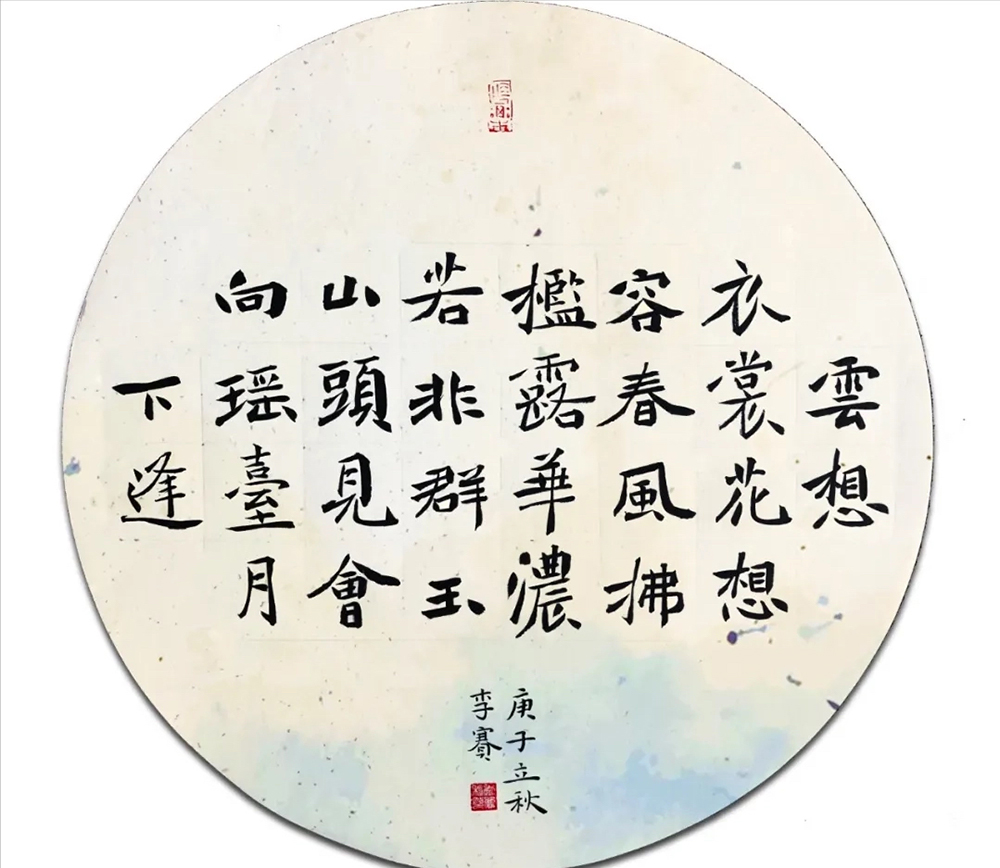 雲想
衣裳花想
容春風拂
檻露華濃
若非群玉
山頭見會
向瑶臺月
下逢
庚子立秋
李賽